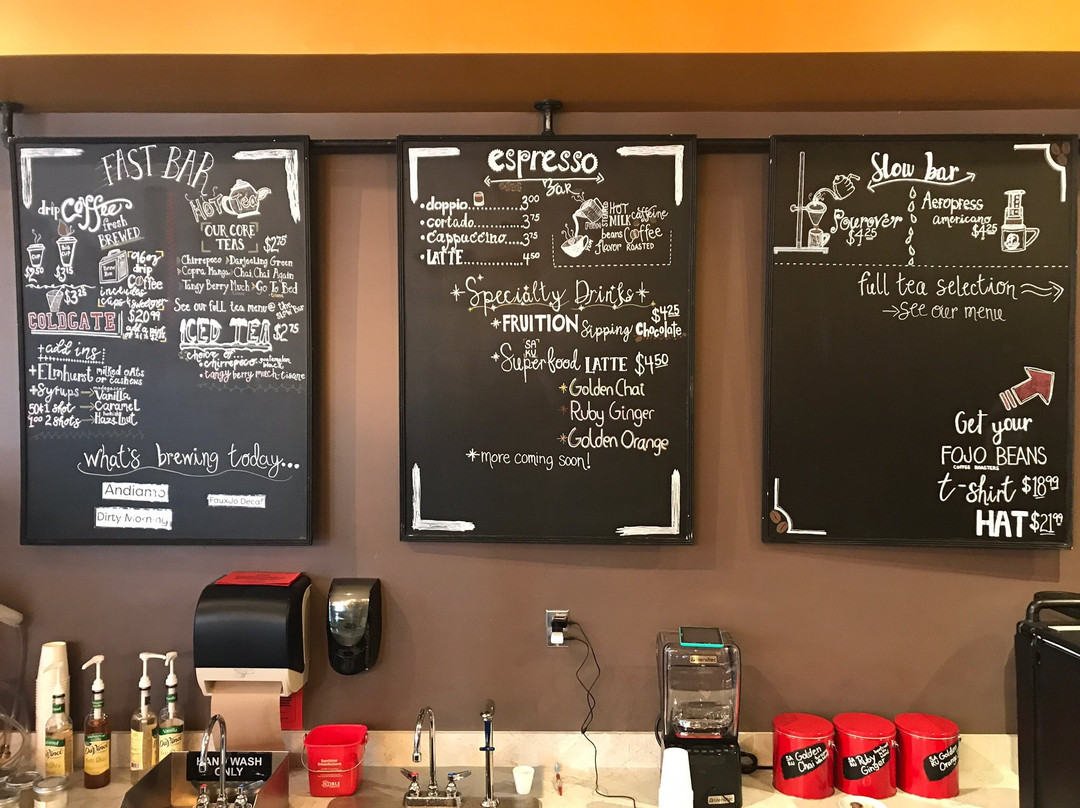 FAST BAR
drip Coffee
fresh
BREWED
$2.50
$3.15
96oz
drip
Coffee
includes
cups & sugar
$20.99
$3.75
COLDGATE
+ add ins
+ Elmhurst milked oats
or cashews
+ Syrups → Vanilla
50¢ 1 shot → Caramel
1.00 2 shots → Hazelnut
HOT tea
OUR CORE
TEAS
$2.75
Chirrepeco
Darjeeling Green
Copra Manga
Chai Chai Again
Tangy Berry Much
Go To Bed
See our full tea menu @ the
slow bar
ICED TEA
$2.75
choice of...
chirrepeco
tangy berry much-tisane
what's brewing today...
Andiamo
FauxJo Decaf
Dirty Morning
espresso
bar
• doppio 3.00
• cortado 3.75
• Cappuccino 3.75
• LATTE 4.50
HOT
MILK
caffeine
beans Coffee
flavor ROASTED
*Specialty Drinks*
*FRUITION Sipping Chocolate $4.25
*SA KU Superfood LATTE $4.50
*Golden Chai
*Ruby Ginger
*Golden Orange
*more coming soon!
Slow bar
Pourover
$4.25
Aeropress
americano
$4.25
full tea selection →
→ See our menu
Get your
FOJO BEANS
COFFEE ROASTERS
t-shirt $18.99
HAT $21.99
DaVinci
DaVinci
Vanilla
HAND WASH
ONLY
SA KU
Golden
Chai
SA KU
Ruby
Ginger
Golden
Orange